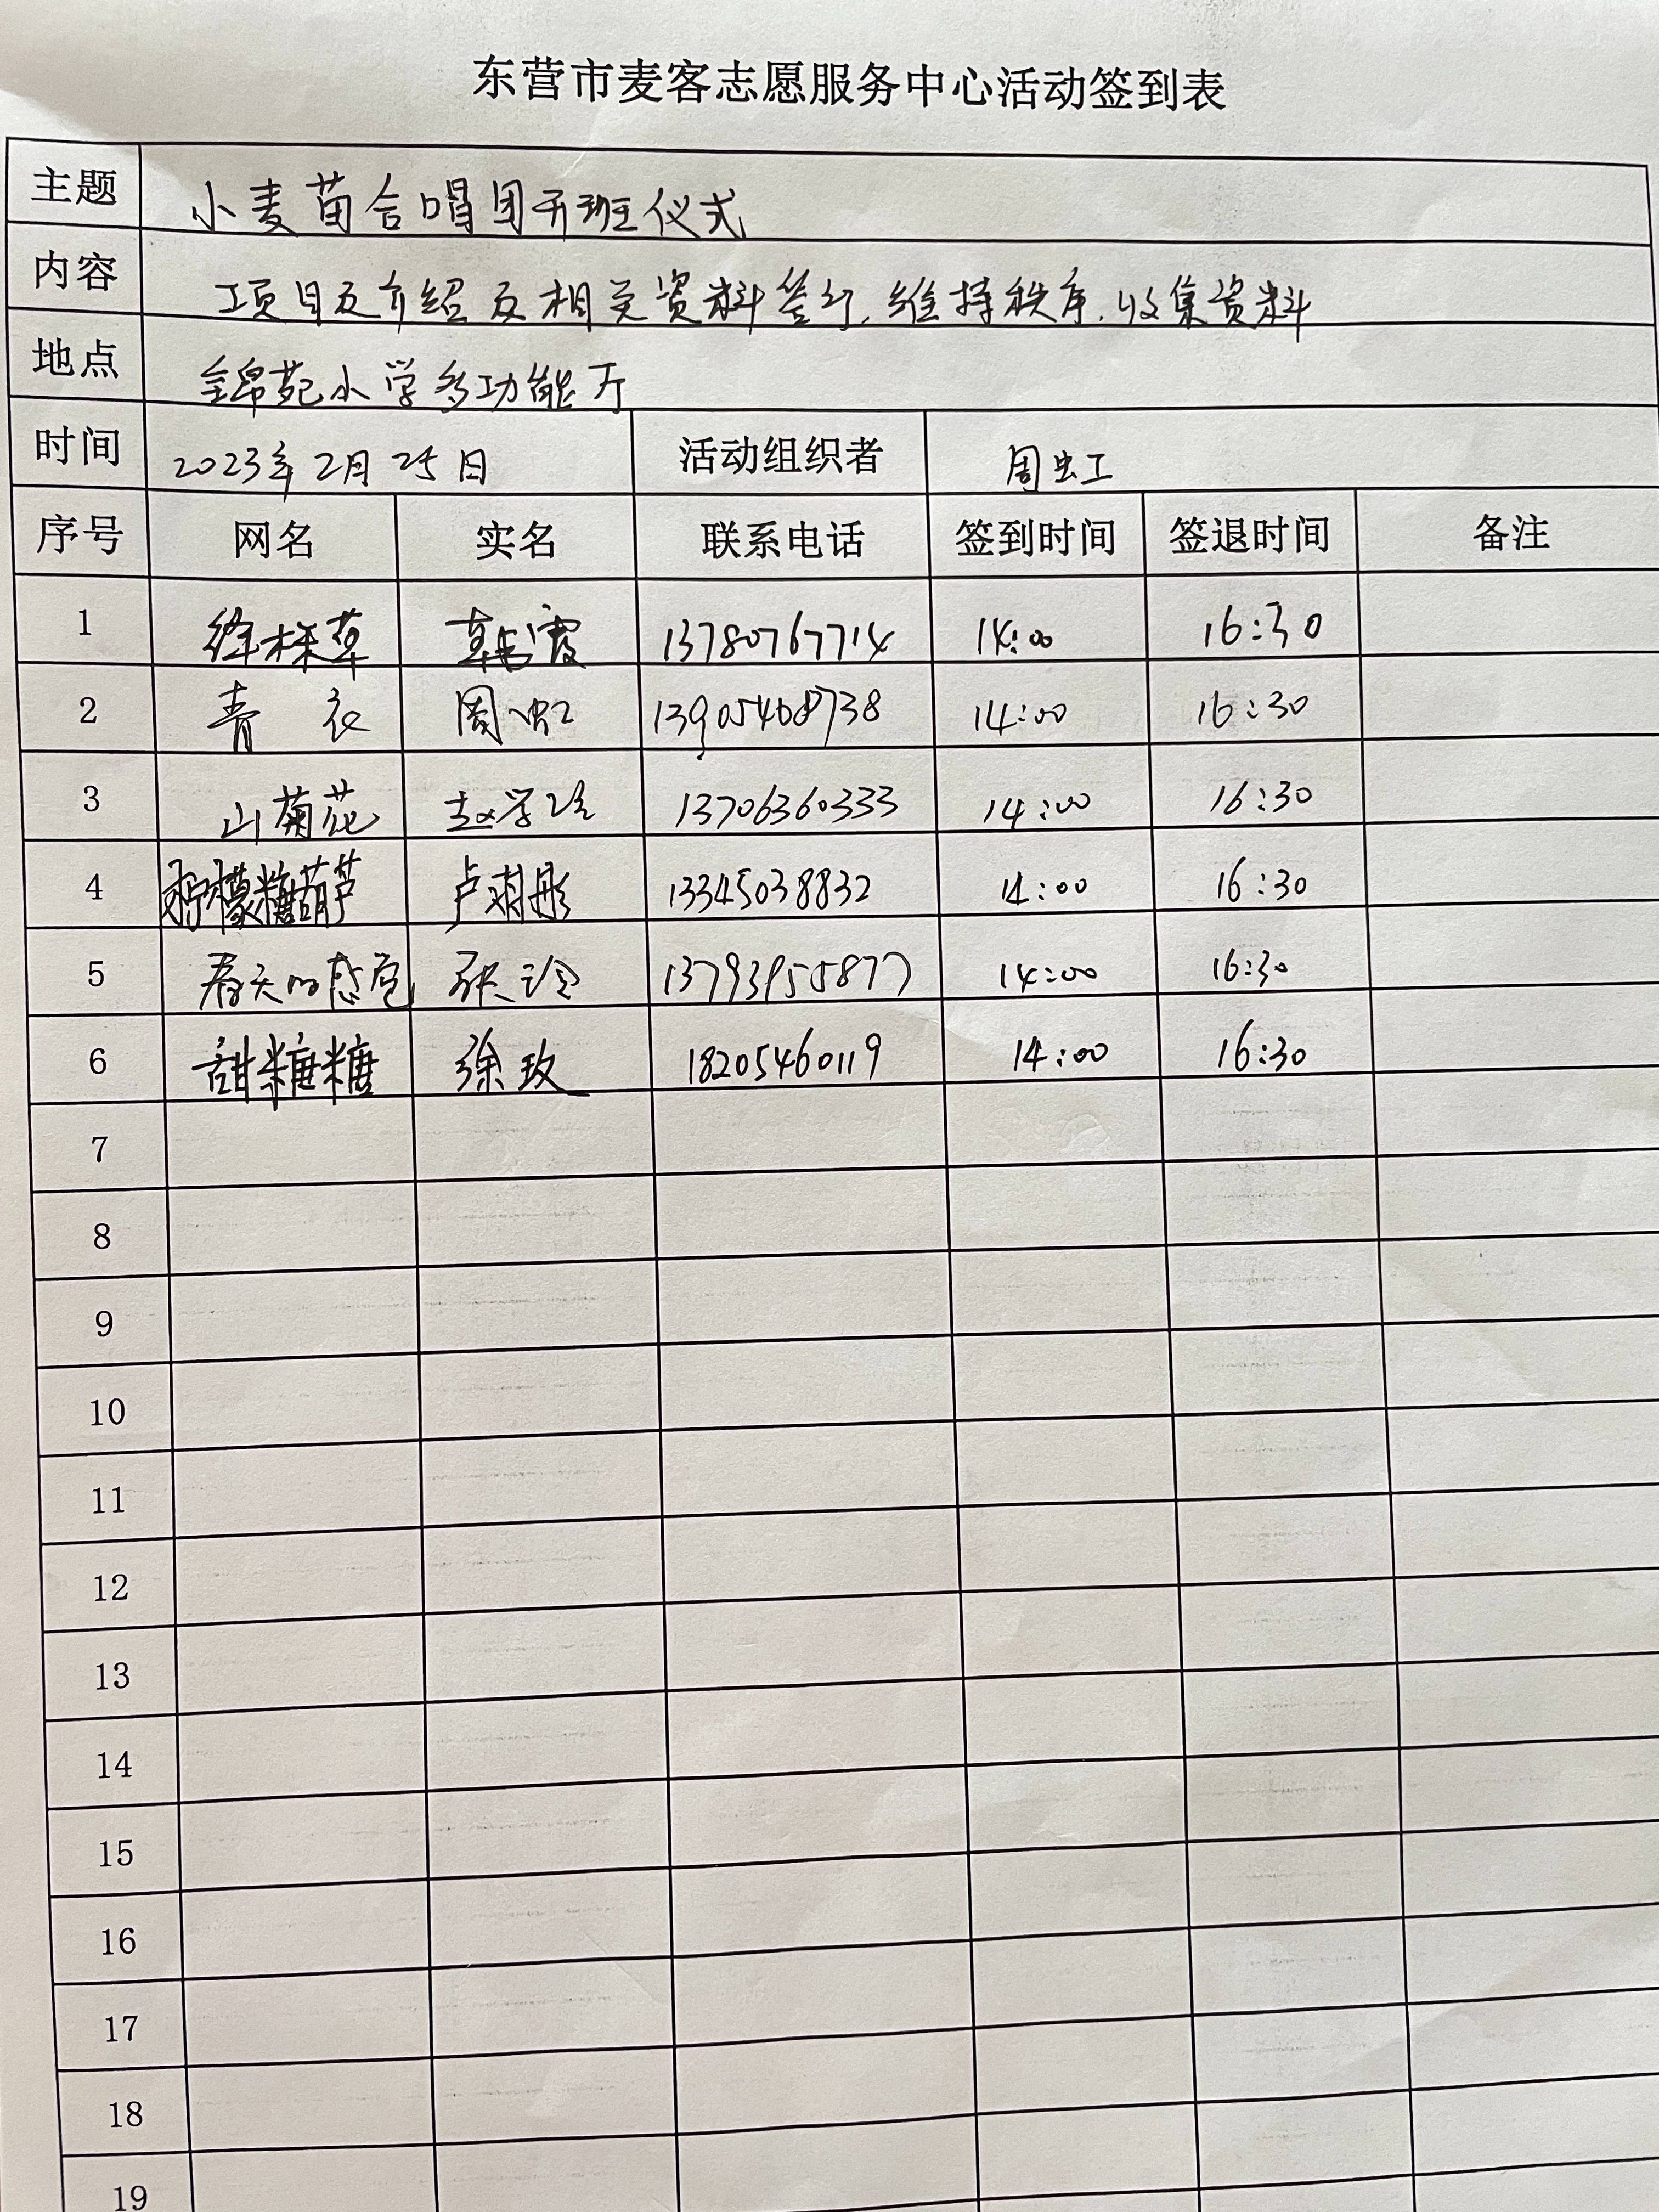 东营市麦客志愿服务中心活动签到表
主题 小麦苗合唱团开班仪式
内容 项目及介绍及相关资料签订,维持秩序,收集资料
地点 锦苑小学多功能厅
时间 2023年2月25日 活动组织者 周虹
序号 网名 实名 联系电话 签到时间 签退时间 备注
1 韩霞 13780767714 14:00 16:30
2 青衣 周虹 13905468738 14:00 16:30
3 山菊花 赵学 13706360333 14:00 16:30
4 柠檬糖葫芦 卢彤 13345038832 14:00 16:30
5 春天的 张 13793955877 14:00 16:30
6 甜糖糖 徐玫 18205460119 14:00 16:30
7
8
9
10
11
12
13
14
15
16
17
18
19